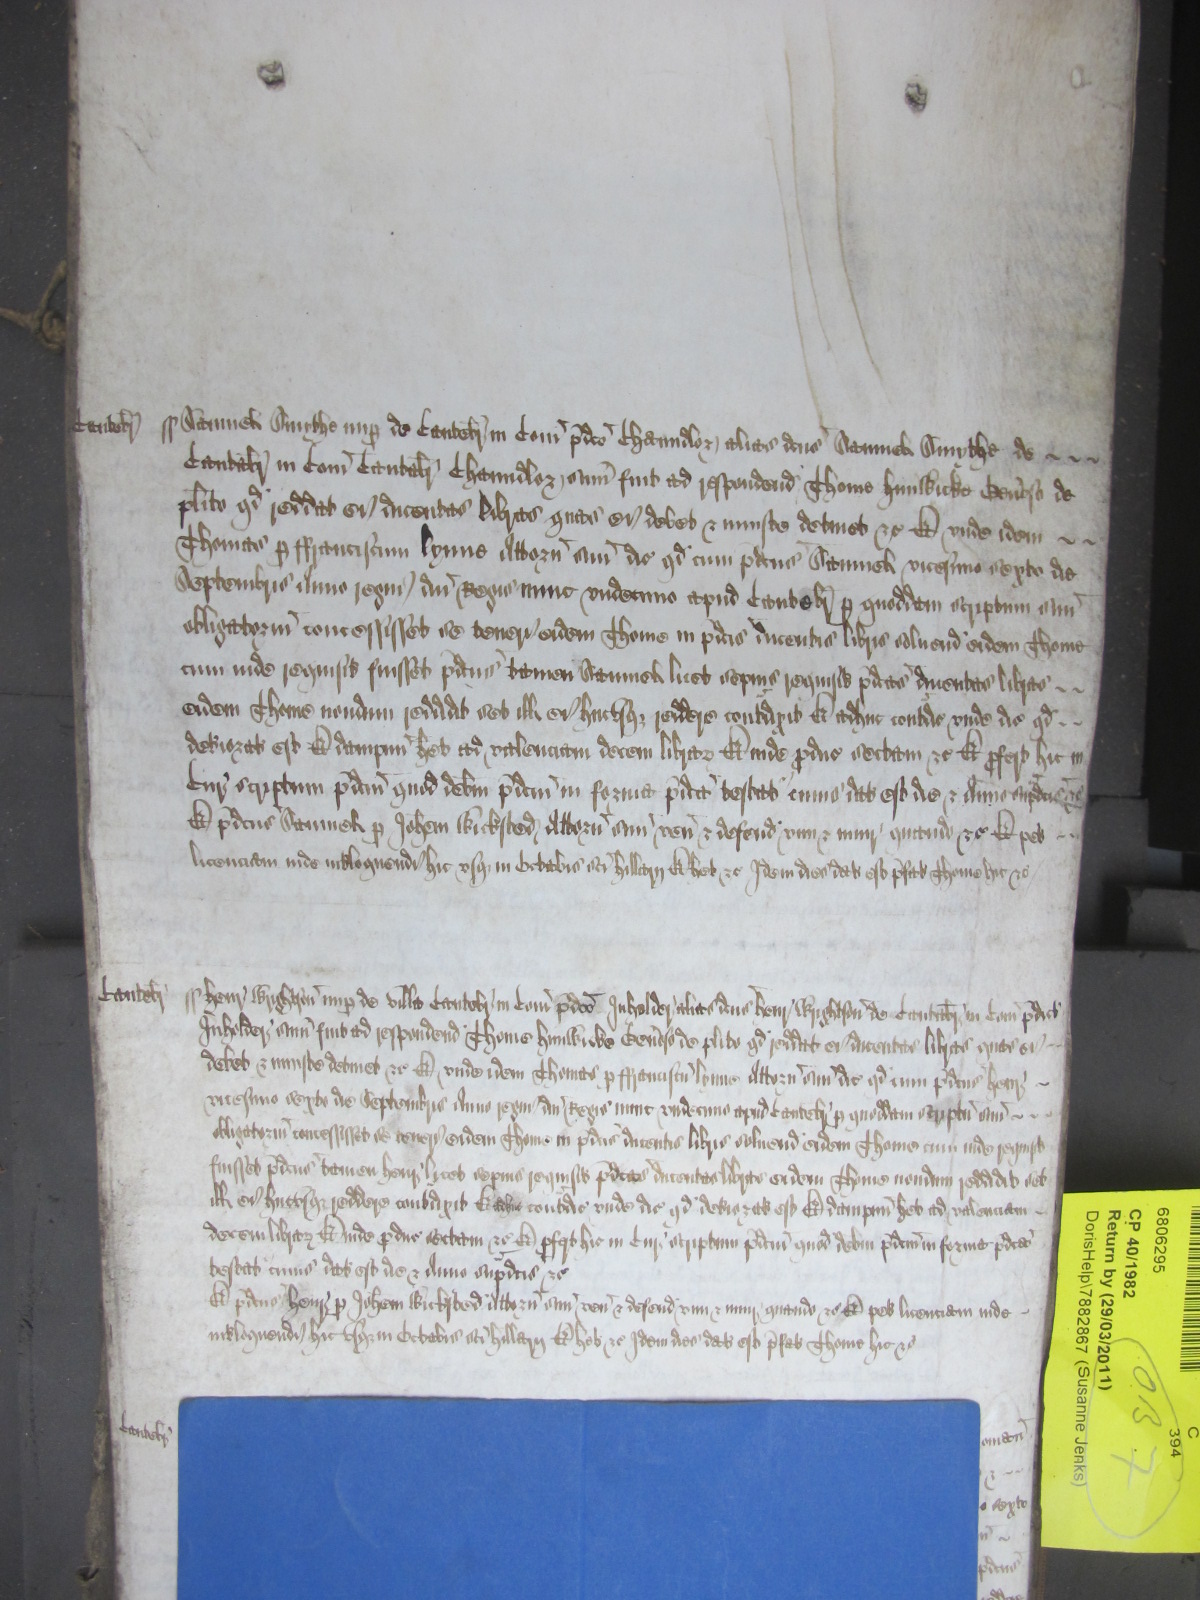 Canteb̄r ss Samuel Smythe nup de Canteb̄r in Com p̄dco Chaundlor alias dcus Samuel Smythe de
Canteb̄r in Com Canteb̄r Chaundlor sum fuit ad respondend Thome Gen̄oso de
plito qd reddat ei ducentas libras quas ei debet & iniuste detinet &c Et unde idem
Thomas p ffranciscum Lynne Attorn suu dic qd cum p̄dcus Samuel vicesimo sexto die
Septembris Anno regni dn̄i Regis nunc undecimo apud Canteb̄r p quoddam scriptum suu
obligatoriu concessisset se teneri eidem Thome in p̄dcis ducentis libris solvend eidem Thome
cum inde requisit fuisset p̄dcus tamen Samuel licet sepius requisit p̄dcas ducentas libras
eidem Thome nondum reddidit set ill ei hucusq reddere contradixit Et adhuc contradic unde dic qd
deteriorat est Et dampnu het ad valenciam decem librar Et inde producit sectam &c Et profert hic in
Cur scriptum p̄dcm quod debm p̄dcm in forma p̄dca testat cuius dat est die & Anno sup̄dcis &c
Et p̄dcus Samuel p Johem Wicksted Attorn suu ven & defend vim & iniur quando &c Et pet
licenciam inde interloquendi hic usq in Octabis sci Hillarij Et het &c Idem dies dat est p̄fat Thome hic &c
Canteb̄r ss Henr Wrightson nup de villa Canteb̄r in Com p̄dco Inholder alias dcus Henr Wrightson de Canteb̄r in Com p̄dict
Inholder sum fuit ad respondend Thome Gen̄oso de plito qd reddat ei ducentas libras quas ei
debet & iniuste detinet &c Et unde idem Thomas p ffranciscu Lynne Attorn suu dic qd cum p̄dcus Henr
vicesimo sexto die Septembris Anno regni dn̄i Regis nunc undecimo apud Canteb̄r p quoddam scriptu suu
obligatoriu concessisset se teneri eidem Thome in p̄dcis ducentis libris solvend eidem Thome cum inde requisit
fuisset p̄dcus tamen Henr licet sepius requisit p̄dcas ducentas libras eidem Thome nondum reddidit set
ill ei hucusq reddere contradixit Et adhuc contradic unde dic qd deteriorat est Et dampnu het ad valenciam
decem librar Et inde produc sectam &c Et profert hic in Cur scriptum p̄dcm quod debm p̄dcm in forma p̄dca
testat cuius dat est die & Anno sup̄dcis &c
Et p̄dcus Henr p Johem Wicksted Attorn suu ven & defend vim & iniur quando &c Et pet licenciam inde
interloquendi hic usq in Octabis sci Hillarij Et het &c Idem dies dat est p̄fat Thome hic &c
Canteb̄r
sexto
p̄dcus
C
394
6806295
CP 40/1982
Return by (29/03/2011)
DorisHelp\7882867 (Susanne Jenks)
7